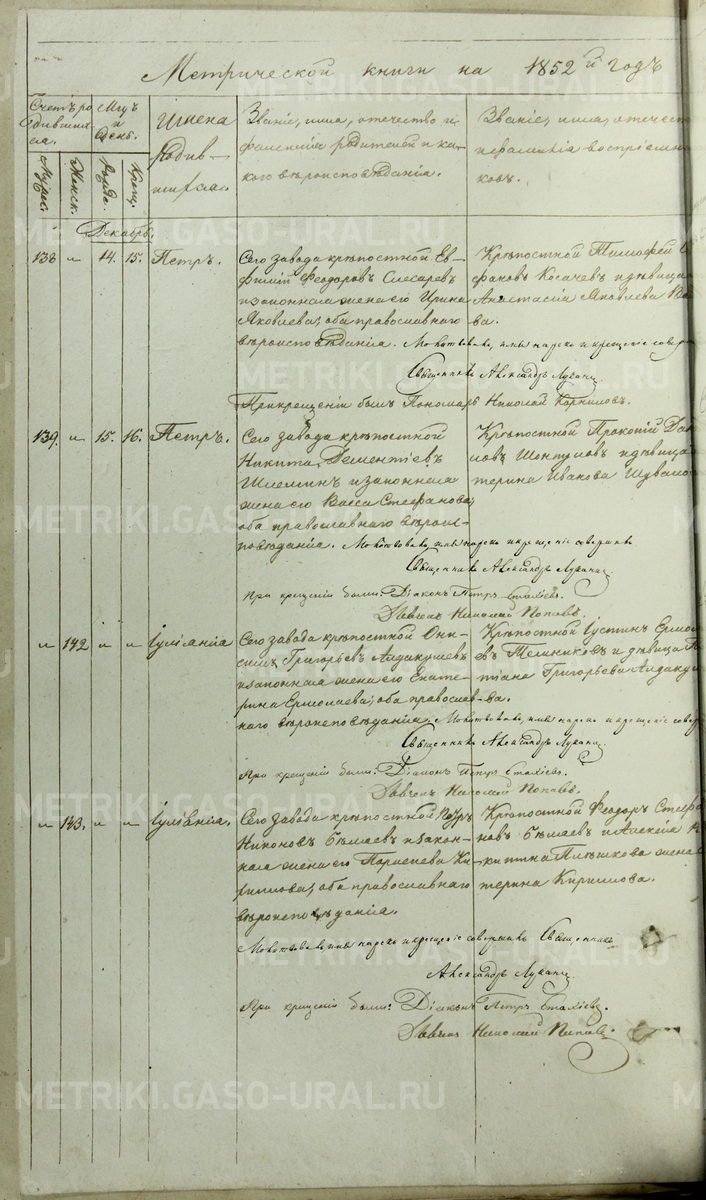 Метрической книги на 1852й годъ
Счетъ ро-
дивших-
ся.
Мужес.
Женск.
Мѣсяцъ
и
день.
Рожде.
Крещ.
Имена
родив-
шихся.
Званіе, имя, отечество и
фамилія родителей и ка-
кого вѣроисповѣданія.
Званіе, имя, отечест
и фамилія воспріемни
ковъ.
Декабрь.
138 " 14. 15. Петръ.
Сего завода крѣпостной Ев-
фимій Феодоровъ Слесаревъ
и законная жена его Ирина
Яковлева; оба православнаго
вѣроисповѣданія.
Крѣпостной Тимофей
фановъ Косачевъ и дѣвица
Анастасія Яковлева
ва.
Молитвовалъ, имя нарекъ и крещеніе совер
Священникъ Александръ Луканинъ
При крещеніи былъ Пономарь Николай Корниловъ.
139. " 15. 16. Петръ.
Сего завода крѣпостной
Никита Дементіевъ
и законная
жена его Васса Стефанова;
оба православнаго вѣроис-
повѣданія.
Крѣпостной Прокопій Дани
ловъ и дѣвица
терина Иванова Шувало
Молитвовалъ, имя нарекъ и крещеніе совершилъ
Священникъ Александръ Луканинъ
При крещеніи были: Діаконъ Петръ Стахіевъ.
Дьячекъ Николай Поповъ.
" 142 " " Іуліанія
Сего завода крѣпостной Они-
симъ Григорьевъ Алдакушевъ
и законная жена его Екате-
рина Ермолаева; оба православ-
наго вѣроисповѣданія.
Крѣпостной Іустинъ Ермола
евъ Мельниковъ и дѣвица
тіана Григорьева Алдаку
ва.
Молитвовалъ, имя нарекъ и крещеніе совер
Священникъ Александръ Луканинъ
При крещеніи были: Діаконъ Петръ Стахіевъ.
Дьячекъ Николай Поповъ.
" 143. " " Іуліанія.
Сего завода крѣпостной Петръ
Никоновъ Бѣлаевъ и закон-
ная жена его Параскева Ки-
рилова; оба православнаго
вѣроисповѣданія.
Крѣпостной Феодоръ Стефа
новъ Бѣлаевъ и Алексѣя Ни
китина Плѣшкова жена
терина Кирилова.
Молитвовалъ, имя нарекъ и крещеніе совершилъ Священникъ
Александръ Луканинъ
При крещеніи были: Діаконъ Петръ Стахіевъ
Дьячекъ Николай Поповъ.
METRIKI.GASO-URAL.RU